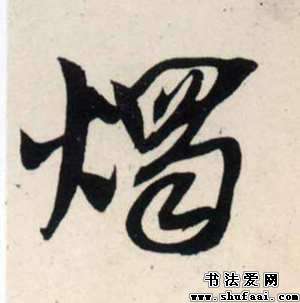 燭
书法爱网
www.shufaai.com